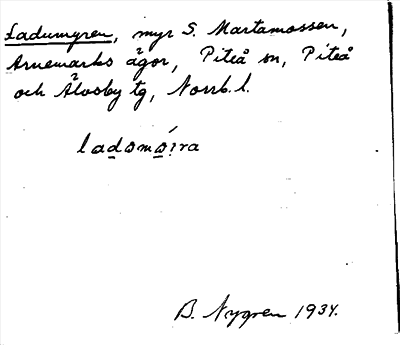 Ladumyren, myr S. Martamossen,
Arnemarks ägor, Piteå sn, Piteå
och Älvsby tg, Norrb. l.
ladomó:ra
B. Nygren 1934.